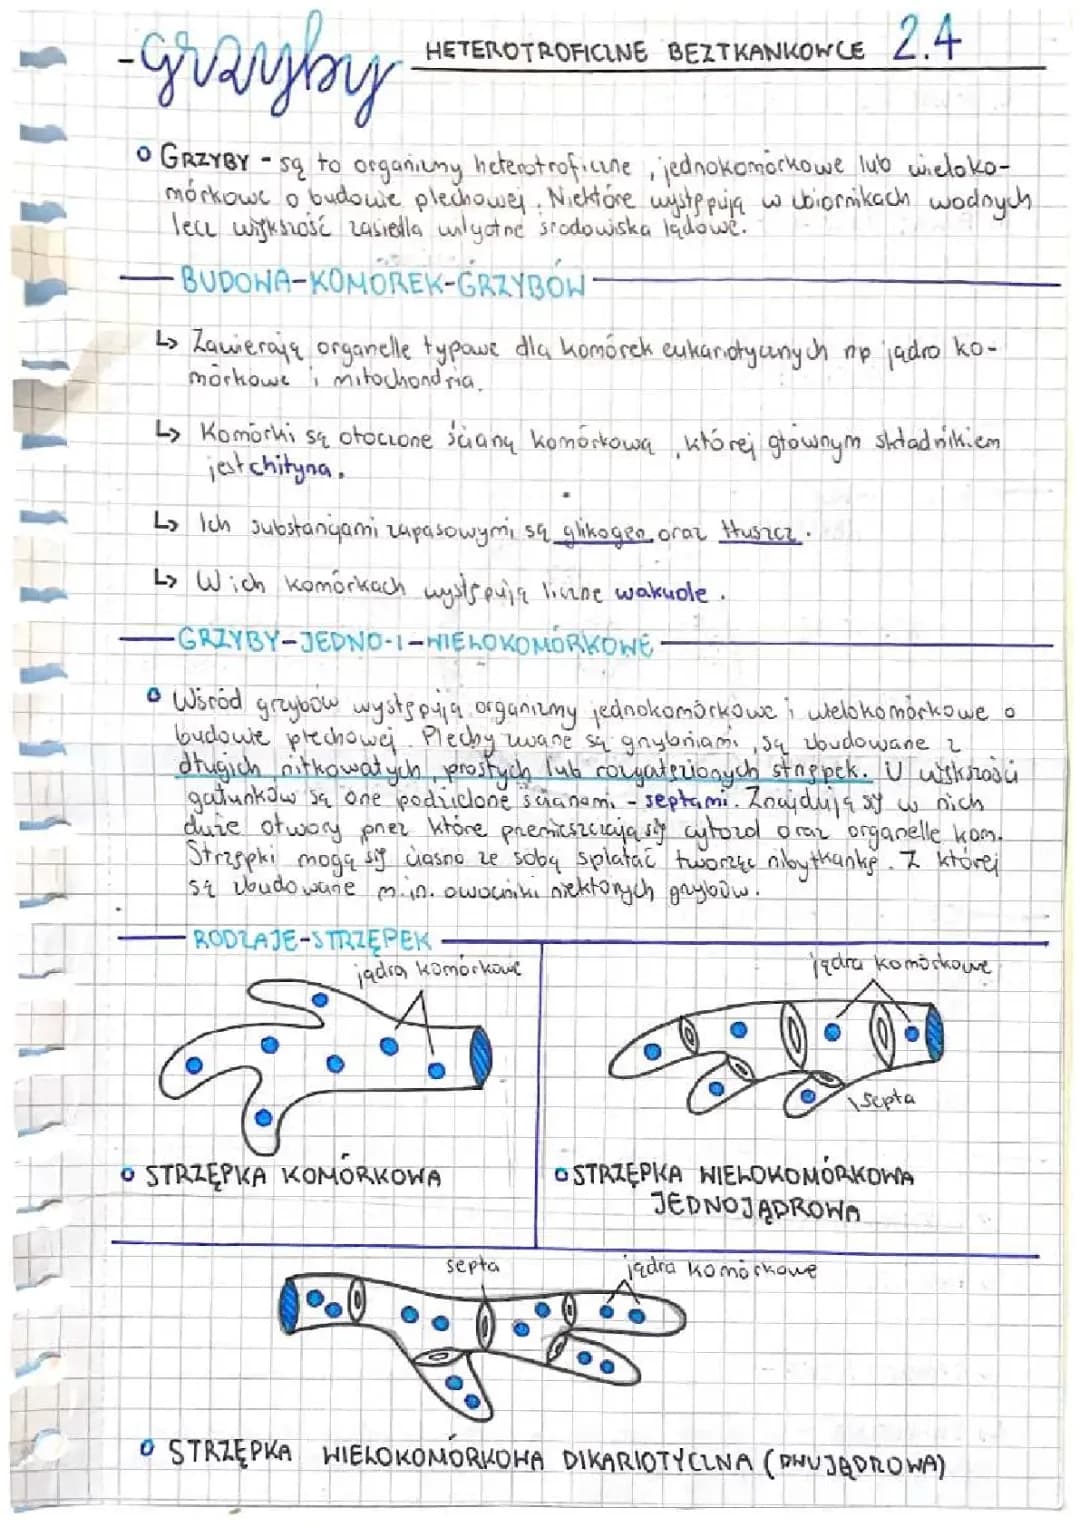 -grzyby HETEROTROFICZNE BEZTKANKOWCE 2.4
GRZYBY - są to organizmy heterotroficzne, jednokomórkowe lub wieloko-
mórkowe o budowie plechowej. Niektóre występują w zbiornikach wodnych
lecz większość zasiedla wilgotne środowiska lądowe.
BUDOWA-KOMÓREK-GRZYBÓW
↳ Zawierają organelle typowe dla komórek eukariotycznych np jądro ko-
mórkowe i mitochondria.
↳ Komórki są otoczone ścianą komórkową, której głównym składnikiem
jest chityna.
↳ Ich substancjami zapasowymi są glikogen oraz tłuszcz.
↳ W ich komórkach występują liczne wakuole.
GRZYBY-JEDNO-I-WIELOKOMÓRKOWE
Wśród grzybów występują organizmy jednokomórkowe i wielokomórkowe o
budowie plechowej. Plechy zwane są grzybniami, są zbudowane z
długich, nitkowatych, prostych lub rozgałęzionych strzępek. U większości
gatunków są one podzielone ścianami - septami. Znajdują sy w nich
duże otwory przez które przemieszczają się cytozol oraz organelle kom.
Strzępki mogą się ciasno ze sobą splatać tworząc nibytkankę. Z której
są zbudowane m.in. owocniki niektórych grzybów.
RODZAJE-STRZĘPEK
jądra komórkowe
jądra komórkowe
septa
STRZĘPKA KOMÓRKOWA
STRZĘPKA WIELOKOMÓRKOWA
JEDNOJĄDROWA
septa
jądra komórkowe
STRZĘPKA WIELOKOMÓRKOWA DIKARIOTYCZNA (DWUJĄDROWA)